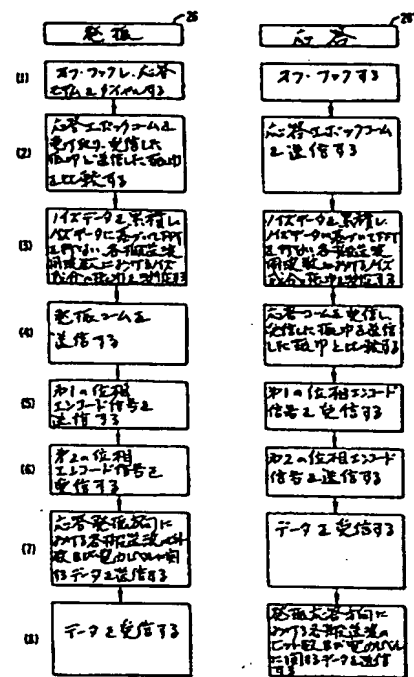 26
発振
(1)
オフ・フックし、応答
モデムをダイヤルする
(2)
応答エポックコームを
受け取り、受信した
振巾と送信した振巾
を比較する
(3)
ノイズデータを累積し
ノイズデータに基づいてFFT
を行ない、各搬送波
周波数におけるノイズ
成分の振巾を
する
(4)
発振コームを
送信する
(5)
第1の位相
エンコード信号を
送信する
(6)
第2の位相
エンコード信号を
受信する
(7)
応答発振方向に
おける各搬送波の
電力レベルに関
するデータを送信する
(8)
データを受信する
26'
応答
オフ・フックする
応答エポックコーム
を送信する
ノイズデータを累積し
ノイズデータに基づいてFFT
を行ない、各搬送波
周波数におけるノイズ
成分の振巾を
する
応答コームを受信し
受信した振巾を送信
した振巾と比較する
第1の位相エンコード
信号を受信する
第2の位相エンコード
信号を送信する
データを受信する
発振応答方向に
おける各搬送波の
ビット数及び電力レベル
に関するデータを送信
する